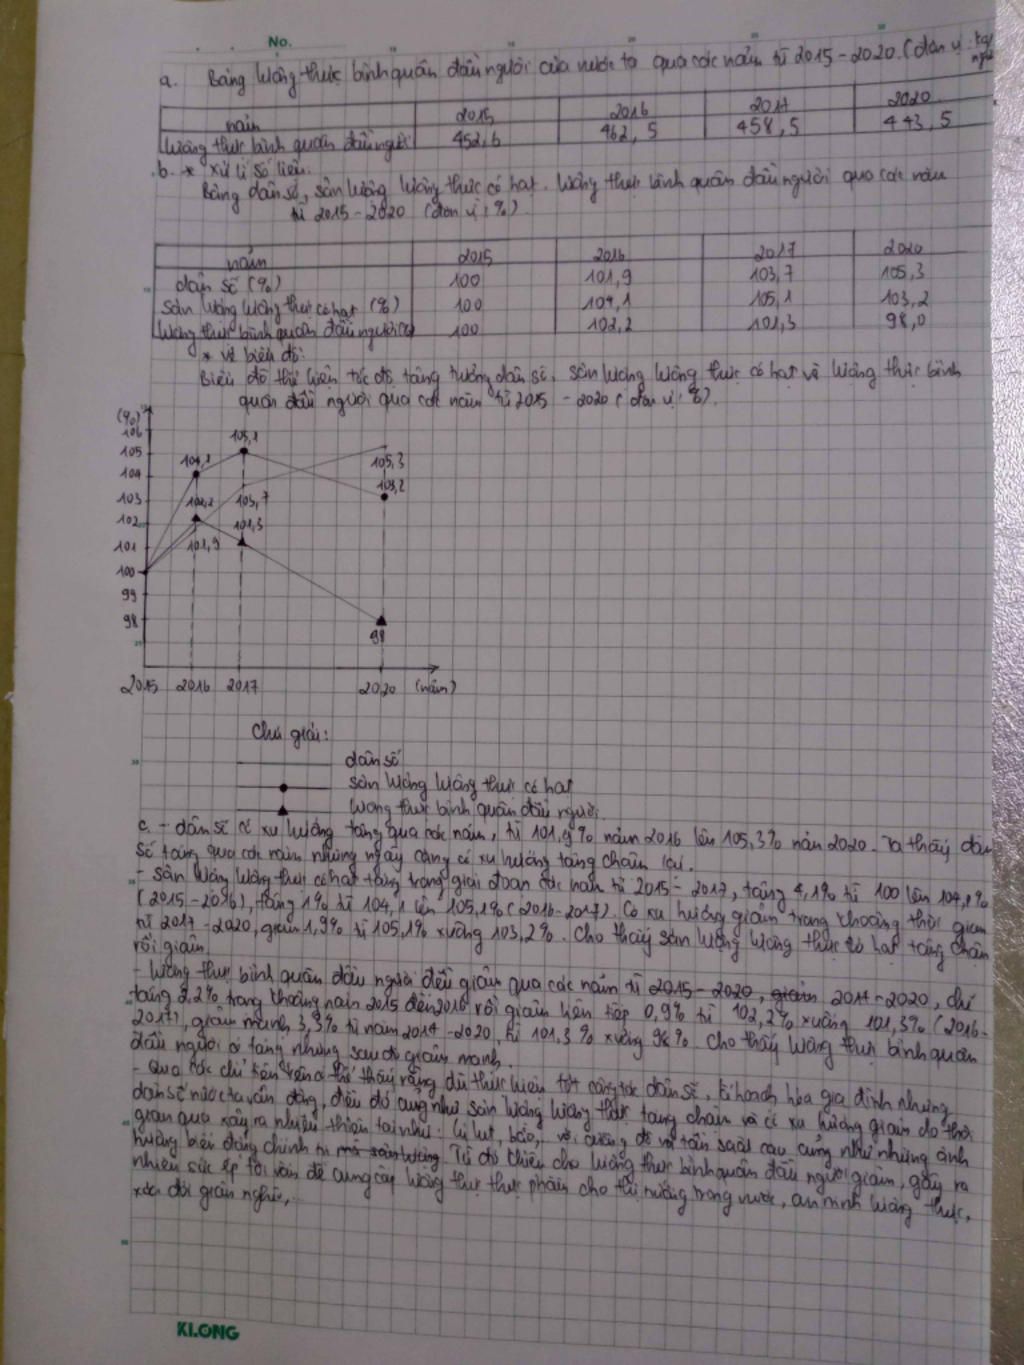 No.
a. Bảng lương thực bình quân đầu người của nước ta qua các năm từ 2015 - 2020. (đơn vị: kg/người
năm 2015 2016 2017 2020
lương thực bình quân đầu người 452,6 462,5 458,5 443,5
b. * xử lí số liệu:
Bảng dân số, sản lượng lương thực có hạt, lương thực bình quân đầu người qua các năm
từ 2015 - 2020 (đơn vị: %).
năm 2015 2016 2017 2020
dân số (%) 100 101,9 103,7 105,3
sản lượng lương thực có hạt (%) 100 104,1 105,1 103,2
lương thực bình quân đầu người (%) 100 102,2 101,3 98,0
* vẽ biểu đồ:
Biểu đồ thể hiện tốc độ tăng trưởng dân số, sản lượng lương thực có hạt và lương thực bình
quân đầu người qua các năm từ 2015 - 2020 (đơn vị: %).
(%)
106
105
104
103
102
101
100
99
98
104,1
105,1
105,3
103,2
102,2
103,7
101,3
101,9
98
2015 2016 2017 2020 (năm)
Chú giải:
dân số
sản lượng lương thực có hạt
lương thực bình quân đầu người.
c. - dân số có xu hướng tăng qua các năm, từ 101,9% năm 2016 lên 105,3% năm 2020. Ta thấy dân
số tăng qua các năm nhưng ngày càng có xu hướng tăng chậm lại.
- sản lượng lương thực có hạt tăng trong giai đoạn các năm từ 2015 - 2017, tăng 4,1% từ 100 lên 104,1%
(2015 - 2016), tăng 1% từ 104,1 lên 105,1% (2016-2017). Có xu hướng giảm trong khoảng thời gian
từ 2017 - 2020, giảm 1,9% từ 105,1% xuống 103,2%. Cho thấy sản lượng lương thực có hạt tăng chậm
rồi giảm.
- lương thực bình quân đầu người đều giảm qua các năm từ 2015 - 2020, giảm 2017 - 2020, chỉ
tăng 2,2% trong khoảng năm 2015 đến 2016 rồi giảm liên tiếp 0,9% từ 102,2% xuống 101,3% (2016-
2017), giảm mạnh 3,3% từ năm 2017 - 2020, từ 101,3% xuống 98%. Cho thấy lương thực bình quân
đầu người có tăng nhưng sau đó giảm mạnh.
- Qua các chỉ tiên trên có thể thấy rằng dù thực hiện tốt công tác dân số, kế hoạch hóa gia đình nhưng
dân số nước ta vẫn đông, điều đó cũng như sản lượng lương thực tăng chậm và có xu hướng giảm do thời
gian qua xảy ra nhiều thiên tai như: lũ lụt, bão, với cường độ và tần suất cao cũng như những ảnh
hưởng biến động chính trị mà sản lượng. Từ đó khiến cho lương thực bình quân đầu người giảm, gây ra
nhiều sức ép tới vấn đề cung cấp lương thực thực phẩm cho thị trường trong nước, an ninh lương thực,
xóa đói giảm nghèo,...
KLONG